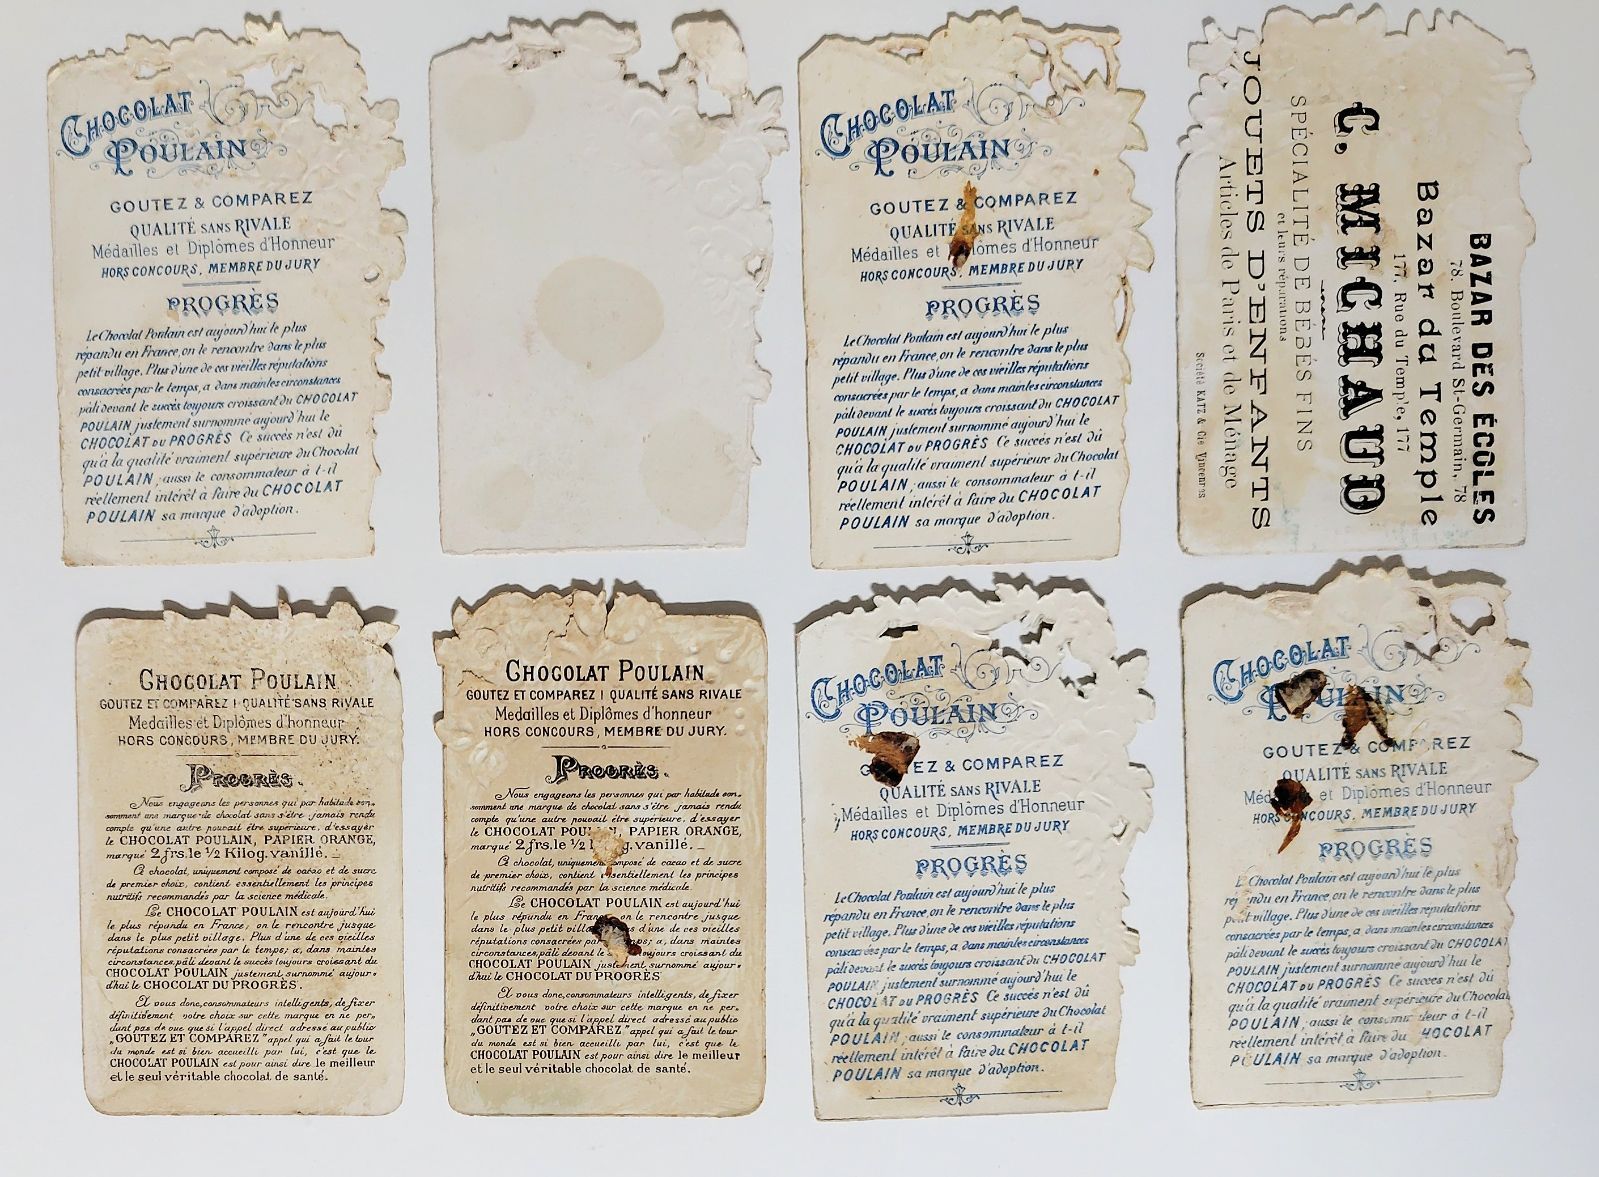 CHOCOLAT
POULAIN
GOUTEZ & COMPAREZ
QUALITÉ SANS RIVALE
Médailles et Diplômes d'Honneur
HORS CONCOURS, MEMBRE DU JURY
PROGRÈS
Le Chocolat Poulain est aujourd'hui le plus
répandu en France, on le rencontre dans le plus
petit village. Plus d'une de ces vieilles réputations
consacrées par le temps, a dans maintes circonstances
pâli devant le succès toujours croissant du CHOCOLAT
POULAIN justement surnommé aujourd'hui le
CHOCOLAT DU PROGRÈS Ce succès n'est dû
qu'à la qualité vraiment supérieure du Chocolat
POULAIN, aussi le consommateur à t-il
réellement intérêt à faire du CHOCOLAT
POULAIN sa marque d'adoption.
CHOCOLAT
POULAIN
GOUTEZ & COMPAREZ
QUALITÉ SANS RIVALE
Médailles et Diplômes d'Honneur
HORS CONCOURS, MEMBRE DU JURY
PROGRÈS
Le Chocolat Poulain est aujourd'hui le plus
répandu en France, on le rencontre dans le plus
petit village. Plus d'une de ces vieilles réputations
consacrées par le temps, a dans maintes circonstances
pâli devant le succès toujours croissant du CHOCOLAT
POULAIN justement surnommé aujourd'hui le
CHOCOLAT DU PROGRÈS Ce succès n'est dû
qu'à la qualité vraiment supérieure du Chocolat
POULAIN, aussi le consommateur à t-il
réellement intérêt à faire du CHOCOLAT
POULAIN sa marque d'adoption.
BAZAR DES ÉCOLES
78, Boulevard St-Germain, 78
Bazar du Temple
177, Rue du Temple, 177
C. MICHAUD
SPÉCIALITÉ DE BÉBÉS FINS
et leurs réparations
JOUETS D'ENFANTS
Articles de Paris et de Ménage
Société KATZ & Cie Vincennes
CHOCOLAT POULAIN
GOUTEZ ET COMPAREZ ! QUALITÉ SANS RIVALE
Medailles et Diplômes d'honneur
HORS CONCOURS, MEMBRE DU JURY.
PROGRÈS.
Nous engageons les personnes qui par habitude con-
somment une marque de chocolat sans s'être jamais rendu
compte qu'une autre pouvait être supérieure, d'essayer
le CHOCOLAT POULAIN, PAPIER ORANGE,
marqué 2 frs. le ½ Kilog. vanillé. _
Ce chocolat, uniquement composé de cacao et de sucre
de premier choix, contient essentiellement les principes
nutritifs recommandés par la science médicale.
Le CHOCOLAT POULAIN est aujourd'hui
le plus répandu en France, on le rencontre jusque
dans le plus petit village. Plus d'une de ces vieilles
réputations consacrées par le temps; a, dans maintes
circonstances, pâli devant le succès toujours croissant du
CHOCOLAT POULAIN justement surnommé aujour-
d'hui le CHOCOLAT DU PROGRÈS.
Et vous donc, consommateurs intelligents, de fixer
définitivement votre choix sur cette marque en ne per-
dant pas de vue que si l'appel direct adressé au public
„GOUTEZ ET COMPAREZ" appel qui a fait le tour
du monde est si bien accueilli par lui, c'est que le
CHOCOLAT POULAIN est pour ainsi dire le meilleur
et le seul véritable chocolat de santé.
CHOCOLAT POULAIN
GOUTEZ ET COMPAREZ ! QUALITÉ SANS RIVALE
Medailles et Diplômes d'honneur
HORS CONCOURS, MEMBRE DU JURY.
PROGRÈS.
Nous engageons les personnes qui par habitude con-
somment une marque de chocolat sans s'être jamais rendu
compte qu'une autre pouvait être supérieure, d'essayer
le CHOCOLAT PAPIER ORANGE,
marqué 2 frs. le ½ vanillé. _
Ce chocolat, uniquement composé de cacao et de sucre
de premier choix, contient essentiellement les principes
nutritifs recommandés par la science médicale.
Le CHOCOLAT POULAIN est aujourd'hui
le plus répandu en France on le rencontre jusque
dans le plus petit Plus d'une de ces vieilles
réputations consacrées par a, dans maintes
circonstances, pâli devant le toujours croissant du
CHOCOLAT POULAIN justement surnommé aujour-
d'hui le CHOCOLAT DU PROGRÈS
Et vous donc, consommateurs intelligents, de fixer
définitivement votre choix sur cette marque en ne per-
dant pas de vue que si l'appel direct adressé au public
„GOUTEZ ET COMPAREZ" appel qui a fait le tour
du monde est si bien accueilli par lui, c'est que le
CHOCOLAT POULAIN est pour ainsi dire le meilleur
et le seul véritable chocolat de santé.
CHOCOLAT
POULAIN
& COMPAREZ
QUALITÉ SANS RIVALE
Médailles et Diplômes d'Honneur
HORS CONCOURS, MEMBRE DU JURY
PROGRÈS
Le Chocolat Poulain est aujourd'hui le plus
répandu en France, on le rencontre dans le plus
petit village. Plus d'une de ces vieilles réputations
consacrées par le temps, a dans maintes circonstances
pâli devant le succès toujours croissant du CHOCOLAT
POULAIN justement surnommé aujourd'hui le
CHOCOLAT DU PROGRÈS Ce succès n'est dû
qu'à la qualité vraiment supérieure du Chocolat
POULAIN, aussi le consommateur à t-il
réellement intérêt à faire du CHOCOLAT
POULAIN sa marque d'adoption.
CHOCOLAT
POULAIN
GOUTEZ & COMPAREZ
QUALITÉ SANS RIVALE
et Diplômes d'Honneur
HORS CONCOURS, MEMBRE DU JURY
PROGRÈS
Le Chocolat Poulain est aujourd'hui le plus
répandu en France, on le rencontre dans le plus
petit village. Plus d'une de ces vieilles réputations
consacrées par le temps, a dans maintes circonstances
pâli devant le succès toujours croissant du CHOCOLAT
POULAIN justement surnommé aujourd'hui le
CHOCOLAT DU PROGRÈS Ce succès n'est dû
qu'à la qualité vraiment supérieure du Chocolat
POULAIN, aussi le à t-il
réellement intérêt à faire du CHOCOLAT
POULAIN sa marque d'adoption.